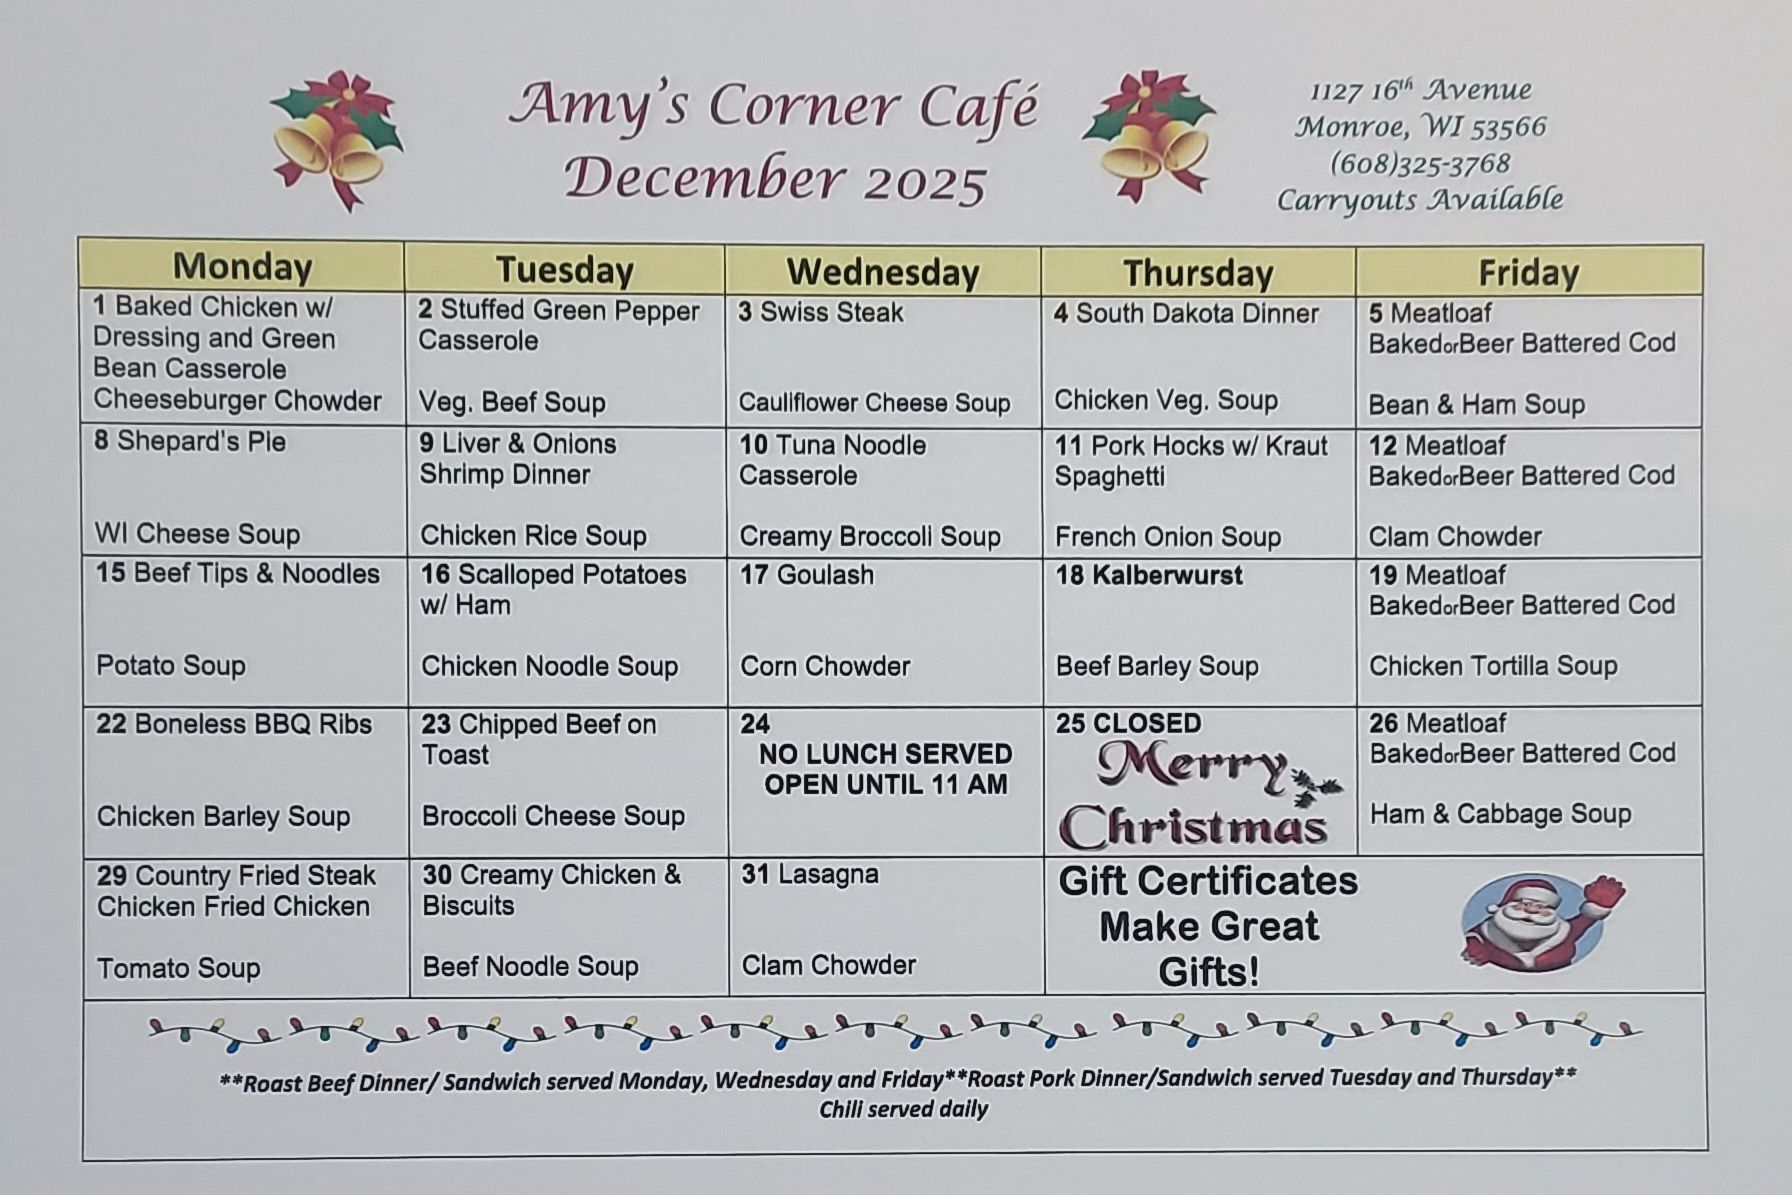 Amy's Corner Café
December 2025
1127 16th Avenue
Monroe, WI 53566
(608)325-3768
Carryouts Available
Monday Tuesday Wednesday Thursday Friday
1 Baked Chicken w/
Dressing and Green
Bean Casserole
Cheeseburger Chowder
2 Stuffed Green Pepper
Casserole
Veg. Beef Soup
3 Swiss Steak
Cauliflower Cheese Soup
4 South Dakota Dinner
Chicken Veg. Soup
5 Meatloaf
BakedorBeer Battered Cod
Bean & Ham Soup
8 Shepard's Pie
WI Cheese Soup
9 Liver & Onions
Shrimp Dinner
Chicken Rice Soup
10 Tuna Noodle
Casserole
Creamy Broccoli Soup
11 Pork Hocks w/ Kraut
Spaghetti
French Onion Soup
12 Meatloaf
BakedorBeer Battered Cod
Clam Chowder
15 Beef Tips & Noodles
Potato Soup
16 Scalloped Potatoes
w/ Ham
Chicken Noodle Soup
17 Goulash
Corn Chowder
18 Kalberwurst
Beef Barley Soup
19 Meatloaf
BakedorBeer Battered Cod
Chicken Tortilla Soup
22 Boneless BBQ Ribs
Chicken Barley Soup
23 Chipped Beef on
Toast
Broccoli Cheese Soup
24
NO LUNCH SERVED
OPEN UNTIL 11 AM
25 CLOSED
Merry
Christmas
26 Meatloaf
BakedorBeer Battered Cod
Ham & Cabbage Soup
29 Country Fried Steak
Chicken Fried Chicken
Tomato Soup
30 Creamy Chicken &
Biscuits
Beef Noodle Soup
31 Lasagna
Clam Chowder
Gift Certificates
Make Great
Gifts!
**Roast Beef Dinner/ Sandwich served Monday, Wednesday and Friday**Roast Pork Dinner/Sandwich served Tuesday and Thursday**
Chili served daily